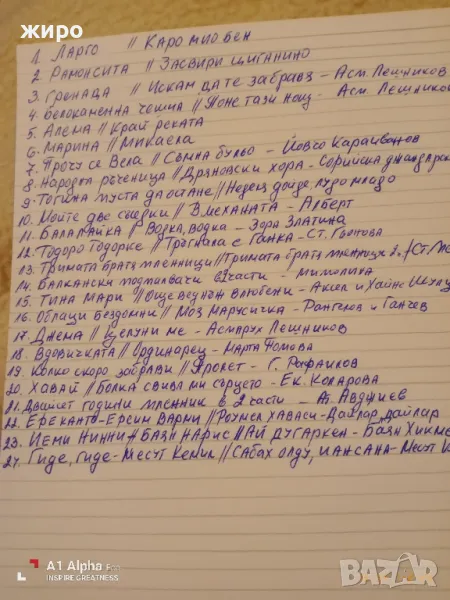 жиро
1. Ларго // Каро мио бен
2. Рамонсита // Засвири циганино
3. Гренада // Искам да те забравя - Асм. Лешников
4. Белокаменна чешма // Поне тази нощ - Асм. Лешников
5. Алема // Край реката
6. Марина // Микаела
7. Прочу се Вела // Сънна бульо - Йовчо Караиванов
8. Народна ръченица // Дряновски хора - Софийска
9. Тогина муста да остане // Недей дойде, лудо младо
10. Мойте две сведки // В механата - Алберт
11. Балалайка // Водка, водка - Зора Златина
12. Тодоро Тодорке // Тръгнала е Ганка - Ст.
13. Тримата братя мленници // Тримата братя мленници 2ч. / Ст.
14. Балкански подмлвачи 2 части - Мимолиха
15. Тина Мари // Още веднъж влюбени - Аксел и Хайнс
16. Облаци бездомни // Моя Марусичка - Рангелов и Ганчев
17. Джема // Целуни ме - Аспарух Лешников
18. Вдовичката // Ординарец - Марта Попова
19. Колко скоро забрави // Ярокет - Г. Рафаилов
20. Хавай // Болка свива ми сърцето - Ек. Коларова
21. Двайсет години мленник в 2 части - Ат. Авджиев
22. Ереканто - Ерсин Варни // Роумел хаваси - Дайлар, дайлар
23. Иеми Нинни - Баян Нарис // Ай дугаркен - Баян
24. Гиде, гиде - Месут Кемил // Сабах олду, иансана - Месут
A1 Alpha
INSPIRE GREATNESS
BAZAR